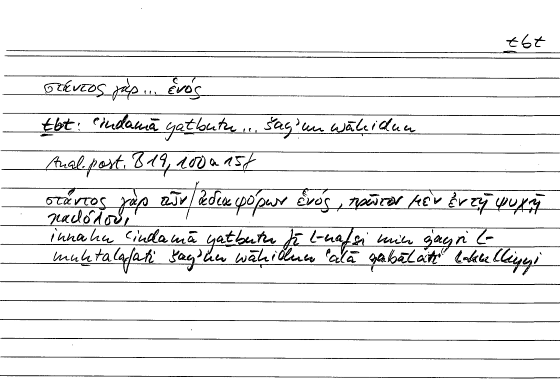 ṯbt
στάντος γὰρ ... ἑνός
ṯbt: ʿindamā yaṯbutu ... šayʾun wāḥidun
Anal. post. B 19, 100a 15f
στάντος γὰρ τῶν / ἀδιαφόρων ἑνός, πρῶτον μὲν ἐν τῇ ψυχῇ
καθόλου,
innahu ʿindamā yaṯbutu fī l-nafsi min ġayri l-
muḫtalafati šayʾun wāḥidun ʿalā l-kulliyyi